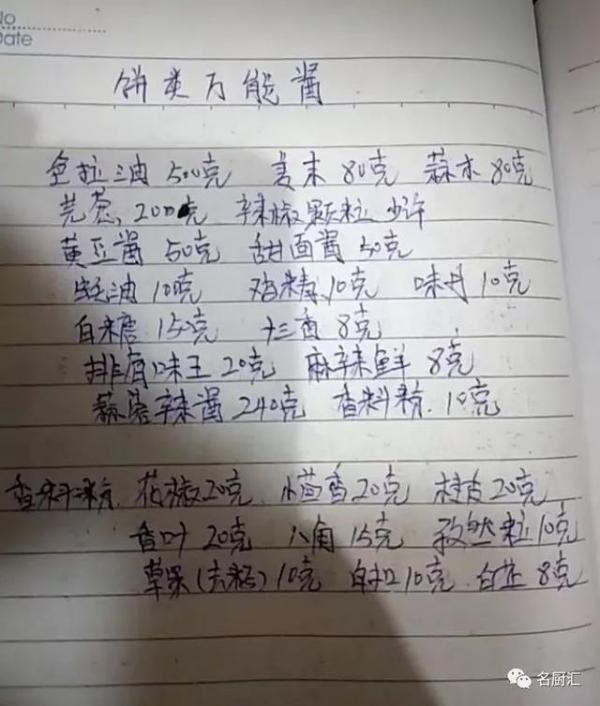 No
Date
饼类万能酱
色拉油 500克 姜末 80克 蒜末 80克
芫荽 200克 辣椒颗粒 少许
黄豆酱 50克 甜面酱 50克
蚝油 10克 鸡精 10克 味丹 10克
白糖 150克 十三香 8克
排骨味王 20克 麻辣鲜 8克
蒜蓉辣酱 240克 香料粉 10克
香料粉 花椒20克 小茴香20克 桂皮20克
香叶 20克 八角 15克 孜然粒 10克
草果(去籽) 10克 白扣10克 白芷 8克
名厨汇